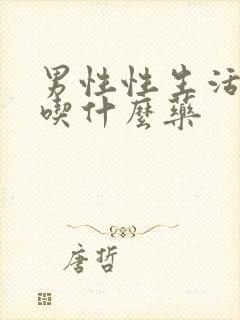 男性性生活
喫什麼藥
唐哲